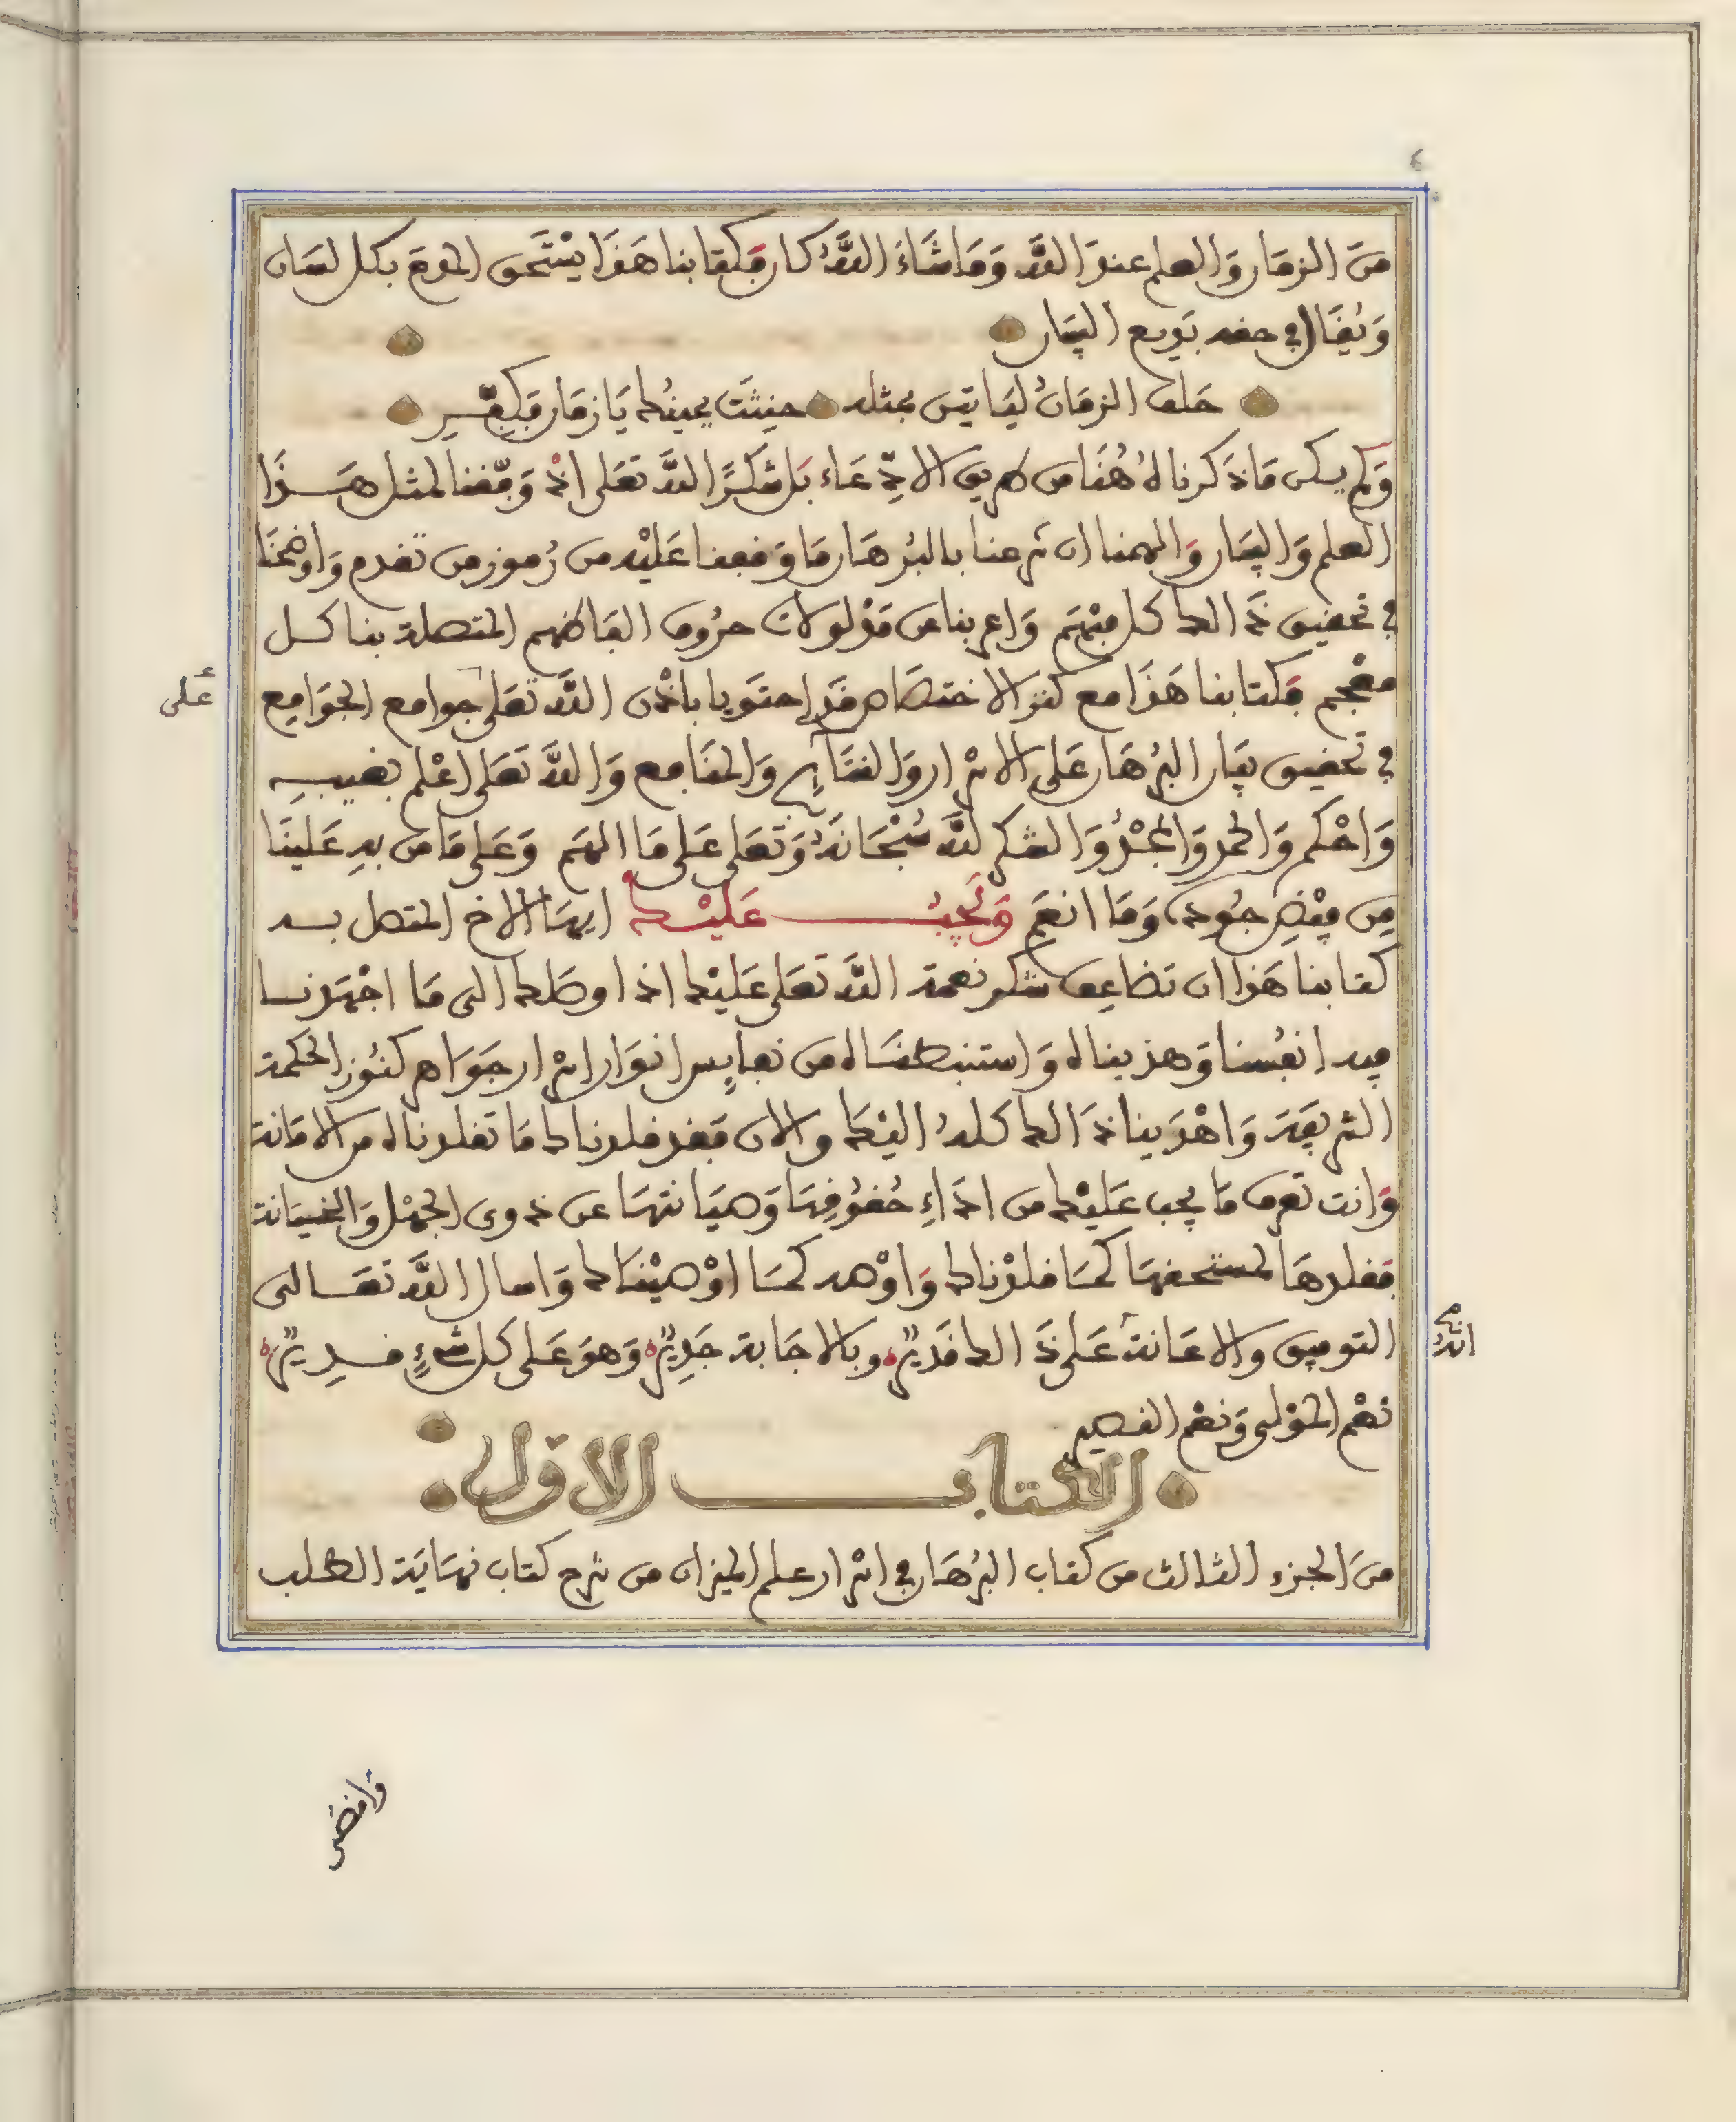 مِنَ الزمَان وَالعلم عندَ اللَّه وَمَا شَاءَ اللَّهُ كان فكتابنا هَذَا يسْتَحق المدح بكل لسَان
وَيُقَال في حقه بَديع البيَان
حَلف الزمَانُ ليَاتين بمثله حنِثَت يمينُك يَا زمَان فكفّــر
وَلم يكن مَا ذكرناهُ هُنَا من طريق الادّعَاء بَل شكرًا للَّه تعَلى اذْ وَفّقنا لمثل هَــذَا
العلم وَالبيَان وَالهمنا ان شرحنا بالبُرهَان مَا وَقفنا عَليْه من رُموز من تقدم وَاوضحْنَا
في تحقيق ذَالك كل مبْهَم وَاعربنا عن مَدْلولات حرُوف الفاظهم المتصلة بنا كـل
معْجم فكتابنا هَذَا مع كنز الاختصَاص قَد احتوَيا باذْن اللَّه تعَلى جوامع الجوَامِع
على
في تحقيق بيَان البُرهَان عَلى الاسْرار وَالنتَائج وَالمنَافع وَاللَّه تعَلى اعْلم بغيبـه
وَاحْكم وَالحمد وَالمجْدُ وَالشكر للَّه سُبْحَانَهُ وَتعَلى عَلى مَا الهَم وَعَلى مَا من بهِ عَلينَا
مِن فيْض جُوده وَمَا انعَم وَيَجِبُ عَليْـك ايهَا الاخ المتصل بـه
كتابنا هَذا ان تضَاعِف شكر نعمة اللَّه تعَلى عَليْك اذ اوصَلك الى مَا اجْهَدنـا
فيه انفُسنا وَهذبناه وَاستنبطنَاه من نفايِس انوَار اسْرار جَوَاهر كنُوز الحكمة
الشريفَة وَاهْدَينا ذَالك كلهُ اليْك والان فقد قلدناك مَا تقلدناه من الامَانة
وَانت تعرف مَا يجب عَليْك من ادَاءِ حُقوُقِهَا وَصيَانتهَا عن ذوى الجهْل وَالخيَانة
فقلدهَا لمستحقهَا كمَا قلدْناك وَاوْصه كمَا اوْصيْنَاك وَاسال اللَّه تعَـالى
التوفيق والاعَانة عَلى ذَالك قَدِيرٌ وبالاجَابة جَدِيرٌ وَهوَ عَلى كل شيْءٍ قـدِيرٌ
انهُ
نعْم المَوْلى وَنعْم النصير
الكتابــــــ الاوّل
منَ الجزء الثالث من كتاب البُرهَان في اسْرار علم الميزان من شرح كتاب نهَايَة الطلب
وَاقصَى